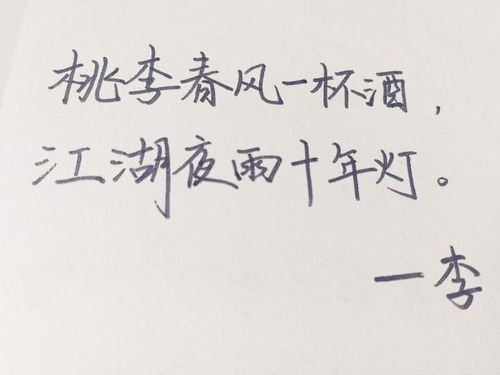 桃李春风一杯酒，
江湖夜雨十年灯。
一李